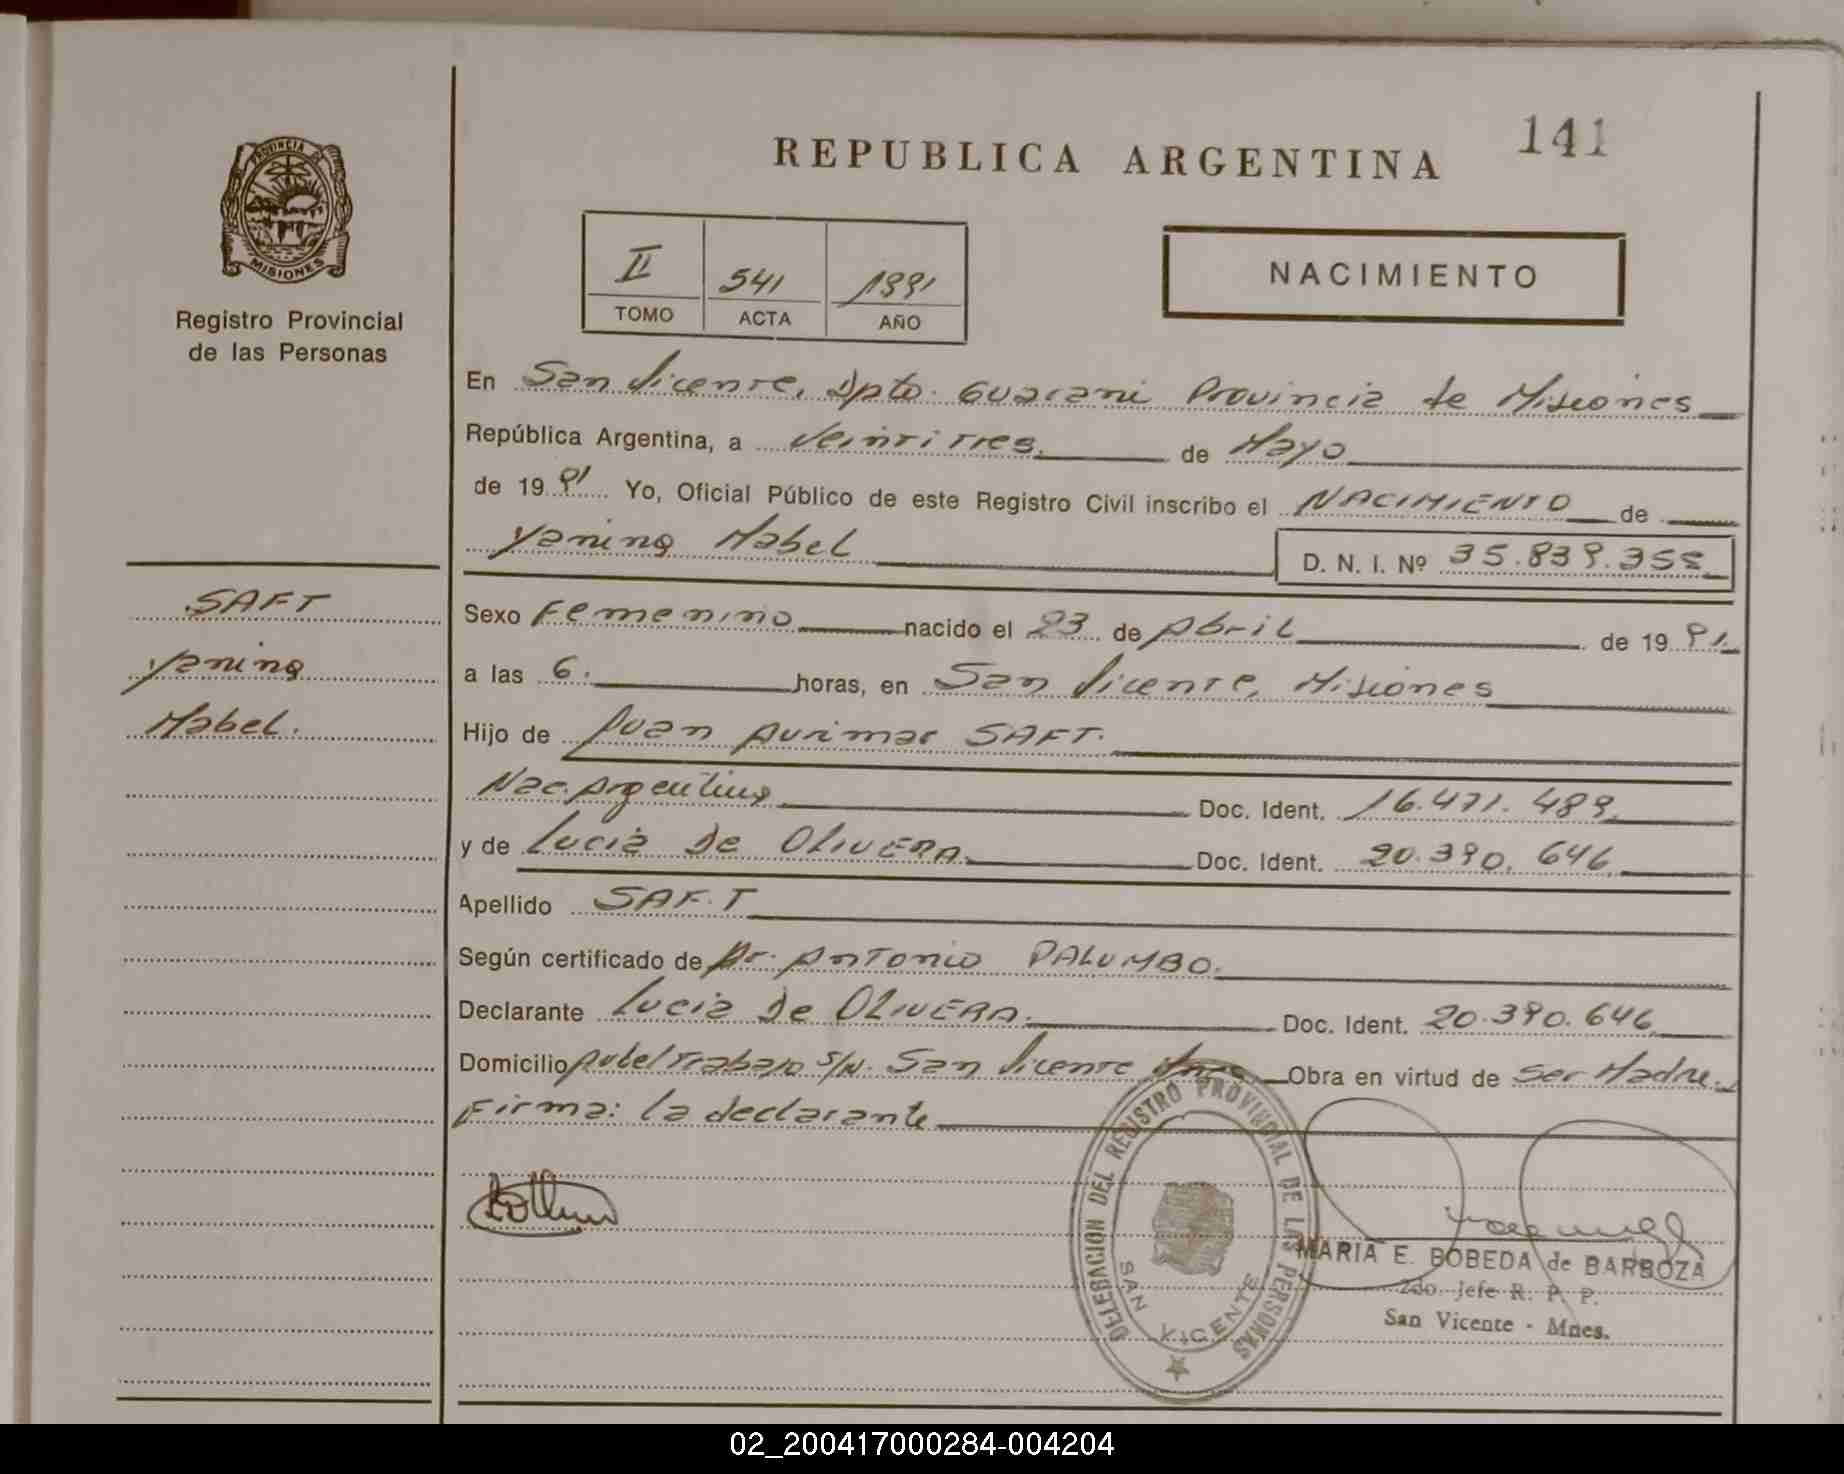 141
REPUBLICA ARGENTINA
PROVINCIA DE
MISIONES
Registro Provincial
de las Personas
II 541 1991
TOMO ACTA AÑO
NACIMIENTO
En San Vicente, Dpto. Guarani Provincia de Misiones
República Argentina, a Veintitres de Mayo
de 19 91 Yo, Oficial Público de este Registro Civil inscribo el NACIMIENTO de
Yanina Mabel D. N. I. Nº 35.839.358
SAFT
Yanina
Mabel.
Sexo Femenino nacido el 23 de Abril de 19 91.
a las 6. horas, en San Vicente, Misiones
Hijo de Juan Aurimar SAFT.
Nac. Argentino Doc. Ident. 16.471.489.
y de Lucia De OLIVERA. Doc. Ident. 20.390.646.
Apellido SAFT
Según certificado de Dr. Antonio PALUMBO.
Declarante Lucia De OLIVERA. Doc. Ident. 20.390.646
Domicilio Av del Trabajo S/N. San Vicente Mnes. Obra en virtud de Ser Madre.
Firma: la declarante
DELEGACION DEL REGISTRO PROVINCIAL DE LAS PERSONAS
SAN VICENTE
MARIA E. BOBEDA de BARBOZA
2do. Jefe R. P. P.
San Vicente - Mnes.
02_200417000284-004204